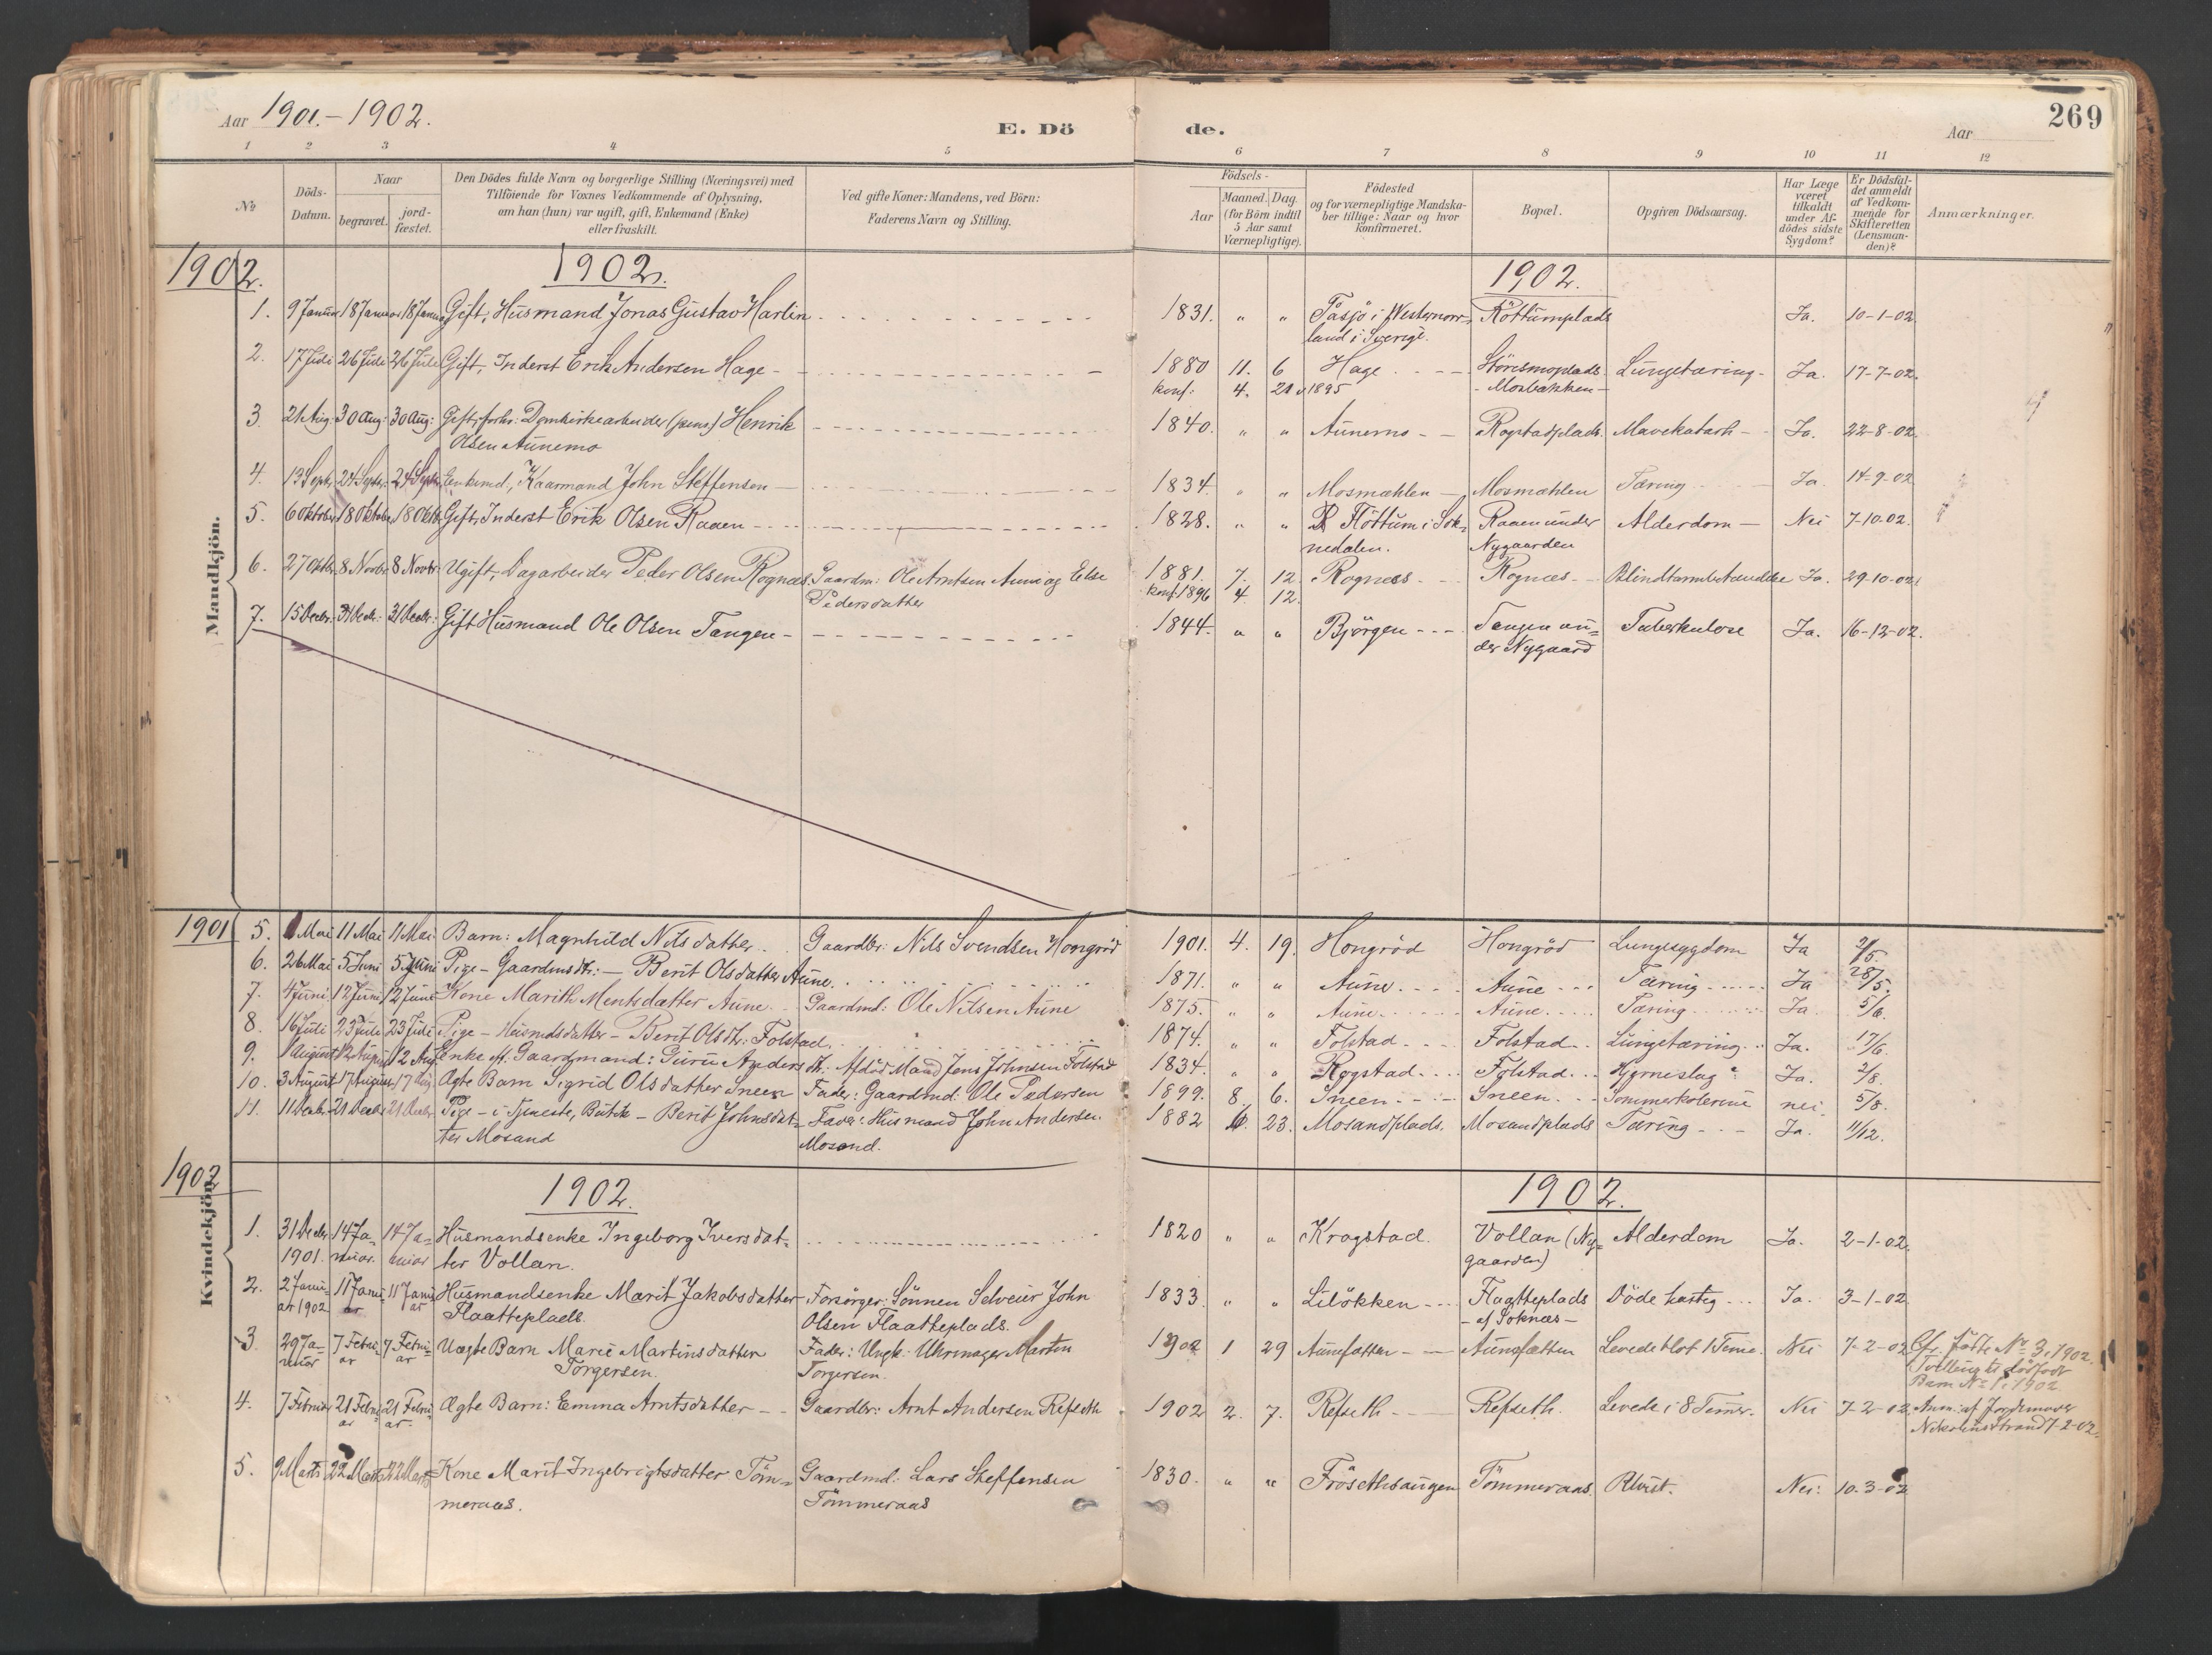 Aar 1901.-1902.
E. Döde.
Aar
269
1 2 3 4 5 6 7 8 9 10 11 12
No
Döds-Datum.
Naar
begravet.
jord-fæstet.
Den Dödes fulde Navn og borgerlige Stilling (Næringsvei) med
Tilföiende for Voxnes Vedkommende af Oplysning,
om han (hun) var ugift, gift, Enkemand (Enke)
eller fraskilt.
Ved gifte Koner: Mandens, ved Börn:
Faderens Navn og Stilling.
Födsels-
Aar
Maaned. Dag.
(for Börn indtil
5 Aar samt
Værnepligtige).
Födested
og for værnepligtige Mandska-
ber tillige: Naar og hvor
konfirmeret.
Bopæl.
Opgiven Dödsaarsag.
Har Læge
været
tilkaldt
under Af-
dödes sidste
Sygdom?
Er Dödsfal-
det anmeldt
af Vedkom-
mende for
Skifteretten
(Lensman-
den)?
Anmærkninger.
Mandkjön.
1902. 1902. 1902.
1. 9 Januar 18 Januar 18 Januar Gift, Husmand Jonas Gustav Harlin 1831. " " Tåsjö i Westernorr- Röttumplads Ja. 10-1-02
land i Sverige.
2. 17 Juli 26 Juli 26 Juli Gift, Inderst Erik Andersen Hage 1880 11. 6 Hage Störismoplads Lungetæring Ja. 17-7-02.
konf: 4. 1895 - Mosbækken -
3. 21 Aug: 30 Aug: 30 Aug: Gift, forhv. Domkirkearbeider (pens) Henrik 1840. " " Aunemo Rogstadplads. Mavekatarh Ja. 22-8-02.
Olsen Aunemo
4. 13 Septr 24 Septr: 24 Septr Enkemd., Kaarmand John Steffensen 1834. " " Mosmæhlen Mosmæhlen Tæring Ja. 14-9-02
5. 6 Oktober 18 Oktober 18 Oktb Gift, Inderst Erik Olsen Raaen 1828. " " Flöttum i Sok- Raaen under Alderdom Nei 7-10-02.
nedalen. Nygaarden
6. 27 Oktbr. 8 Novbr. 8 Novbr. Ugift, Dagarbeider Peder Olsen Rognæs. Gaardm: Ole Arntsen Aune og Else 1881. 7. 12. Rognæs Rognæs Blindtarmbetændelse Ja. 29-10-02.
Pedersdatter konf. 1896 4. 12.
7. 15 Decbr. 31 Decbr: 31 Decbr: Gift Husmand Ole Olsen Tangen 1844. " " Björgen Tangen un- Tuberkulose Ja. 16-12-02.
der Nygaard
1901 5. Mai 11 Mai 11 Mai Barn: Magnhild Nilsdatter. Gaardbr: Nils Svendsen Hongröd 1901. 4. 19. Hongröd Hongröd Lungesygdom Ja 2/5.
6. 26 Mai 5 Juni 5 Juni Pige - Gaardmsdtr: - Berit Olsdatter Aune. 1871. " " Aune Aune Tæring Ja 28/5.
7. 4 Juni 12 Juni 12 Juni Kone Marith Mentsdatter Aune. Gaardmd: Ole Nilsen Aune 1875. " " Aune Aune Tæring Ja. 5/6.
8. 16 Juli 23 Juli 23 Juli Pige - Husmdsdatter - Berit Olsdtr: Folstad. 1874. " " Folstad Folstad Lungetæring Ja. 17/6.
9. 1 August 12 August 12 Aug Enke eft. Gaardmand: Guru Andersdtr. Afdöd Mand Jens Johnsen Folstad 1834. " " Rogstad Folstad Hjerneslag Ja. 2/8.
10. 3 August 17 August 17 Aug Ægte Barn Sigrid Olsdatter Sneen Fader: Gaardmd: Ole Pedersen 1899. 8. 6. Sneen Sneen Sommerkolerine nei. 5/8.
11. 11 Decbr. 21 Decbr 21 Decbr Pige - i Tjeneste, Butik - Berit Johnsdat- Fader: Husmand John Andersen 1882 6. 23. Mosandplads. Mosandplads Tæring Ja. 11/12.
ter Mosand Mosand.
Kvindekjön.
1902 1902. 1902.
1. 31 Decbr 14 Ja- 14 Ja- Husmandsenke Ingeborg Iversdat- 1820 " " Krogstad. Vollan (Ny- Alderdom Ja. 2-1-02.
1901. nuar. nuar ter Vollan. gaarden)
2. 2 Janu- 11 Janu- 11 Janu- Husmandsenke Marit Jakobsdatter Forsörger: Sönnen Selveier John 1833. " " Lilökken Flaatteplads Döde hastig Ja. 3-1-02.
ar 1902 ar ar Flaatteplads. Olsen Flaatteplads. - af Soknæs -
3. 29 Ja- 7 Febru- 7 Febru- Uægte Barn Marie Martinsdatter Fader: Ungk. Uhrmager Martin 1902 1 29 Aunefatten Aunefætten Levede blot 1 Time. Nei 7-2-02 Cfr. födte No 3, 1902.
nuar ar ar Torgersen. Torgersen. Tvilling til dödfödt
Barn No 1, 1902
4. 7 Februar 21 Febru- 21 Febru- Ægte Barn: Emma Arntsdatter Gaardbr: Arnt Andersen Refseth 1902 2. 7. Refseth Refseth. Levede i 8 Timer. Nei 7-2-02. Anm: af Jordemoder
ar ar. Nikoline Strand 7-2-02.
5. 9 Marts 22 Marts 22 Marts Kone Marit Ingebrigtsdatter Töm- Gaardmd: Lars Steffensen 1830. " " Frösethsaugen Tömmeraas. Nei: 10.3-02
meraas. Tömmeraas